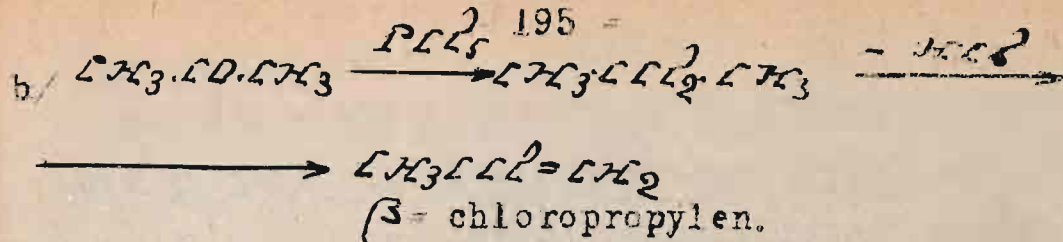 195 -
b/ CH₃.CO.CH₃ PCl₅→ CH₃.CCl₂.CH₃ - HCl→
→ CH₃CCl=CH₂
β - chloropropylen.